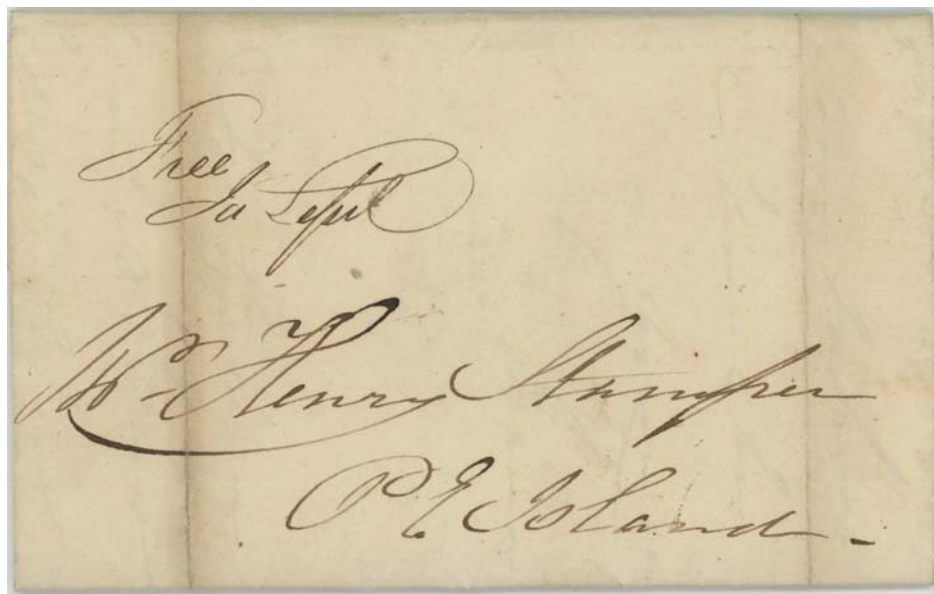 Free
Ja
Mr Henry Stamper
P. E Island -